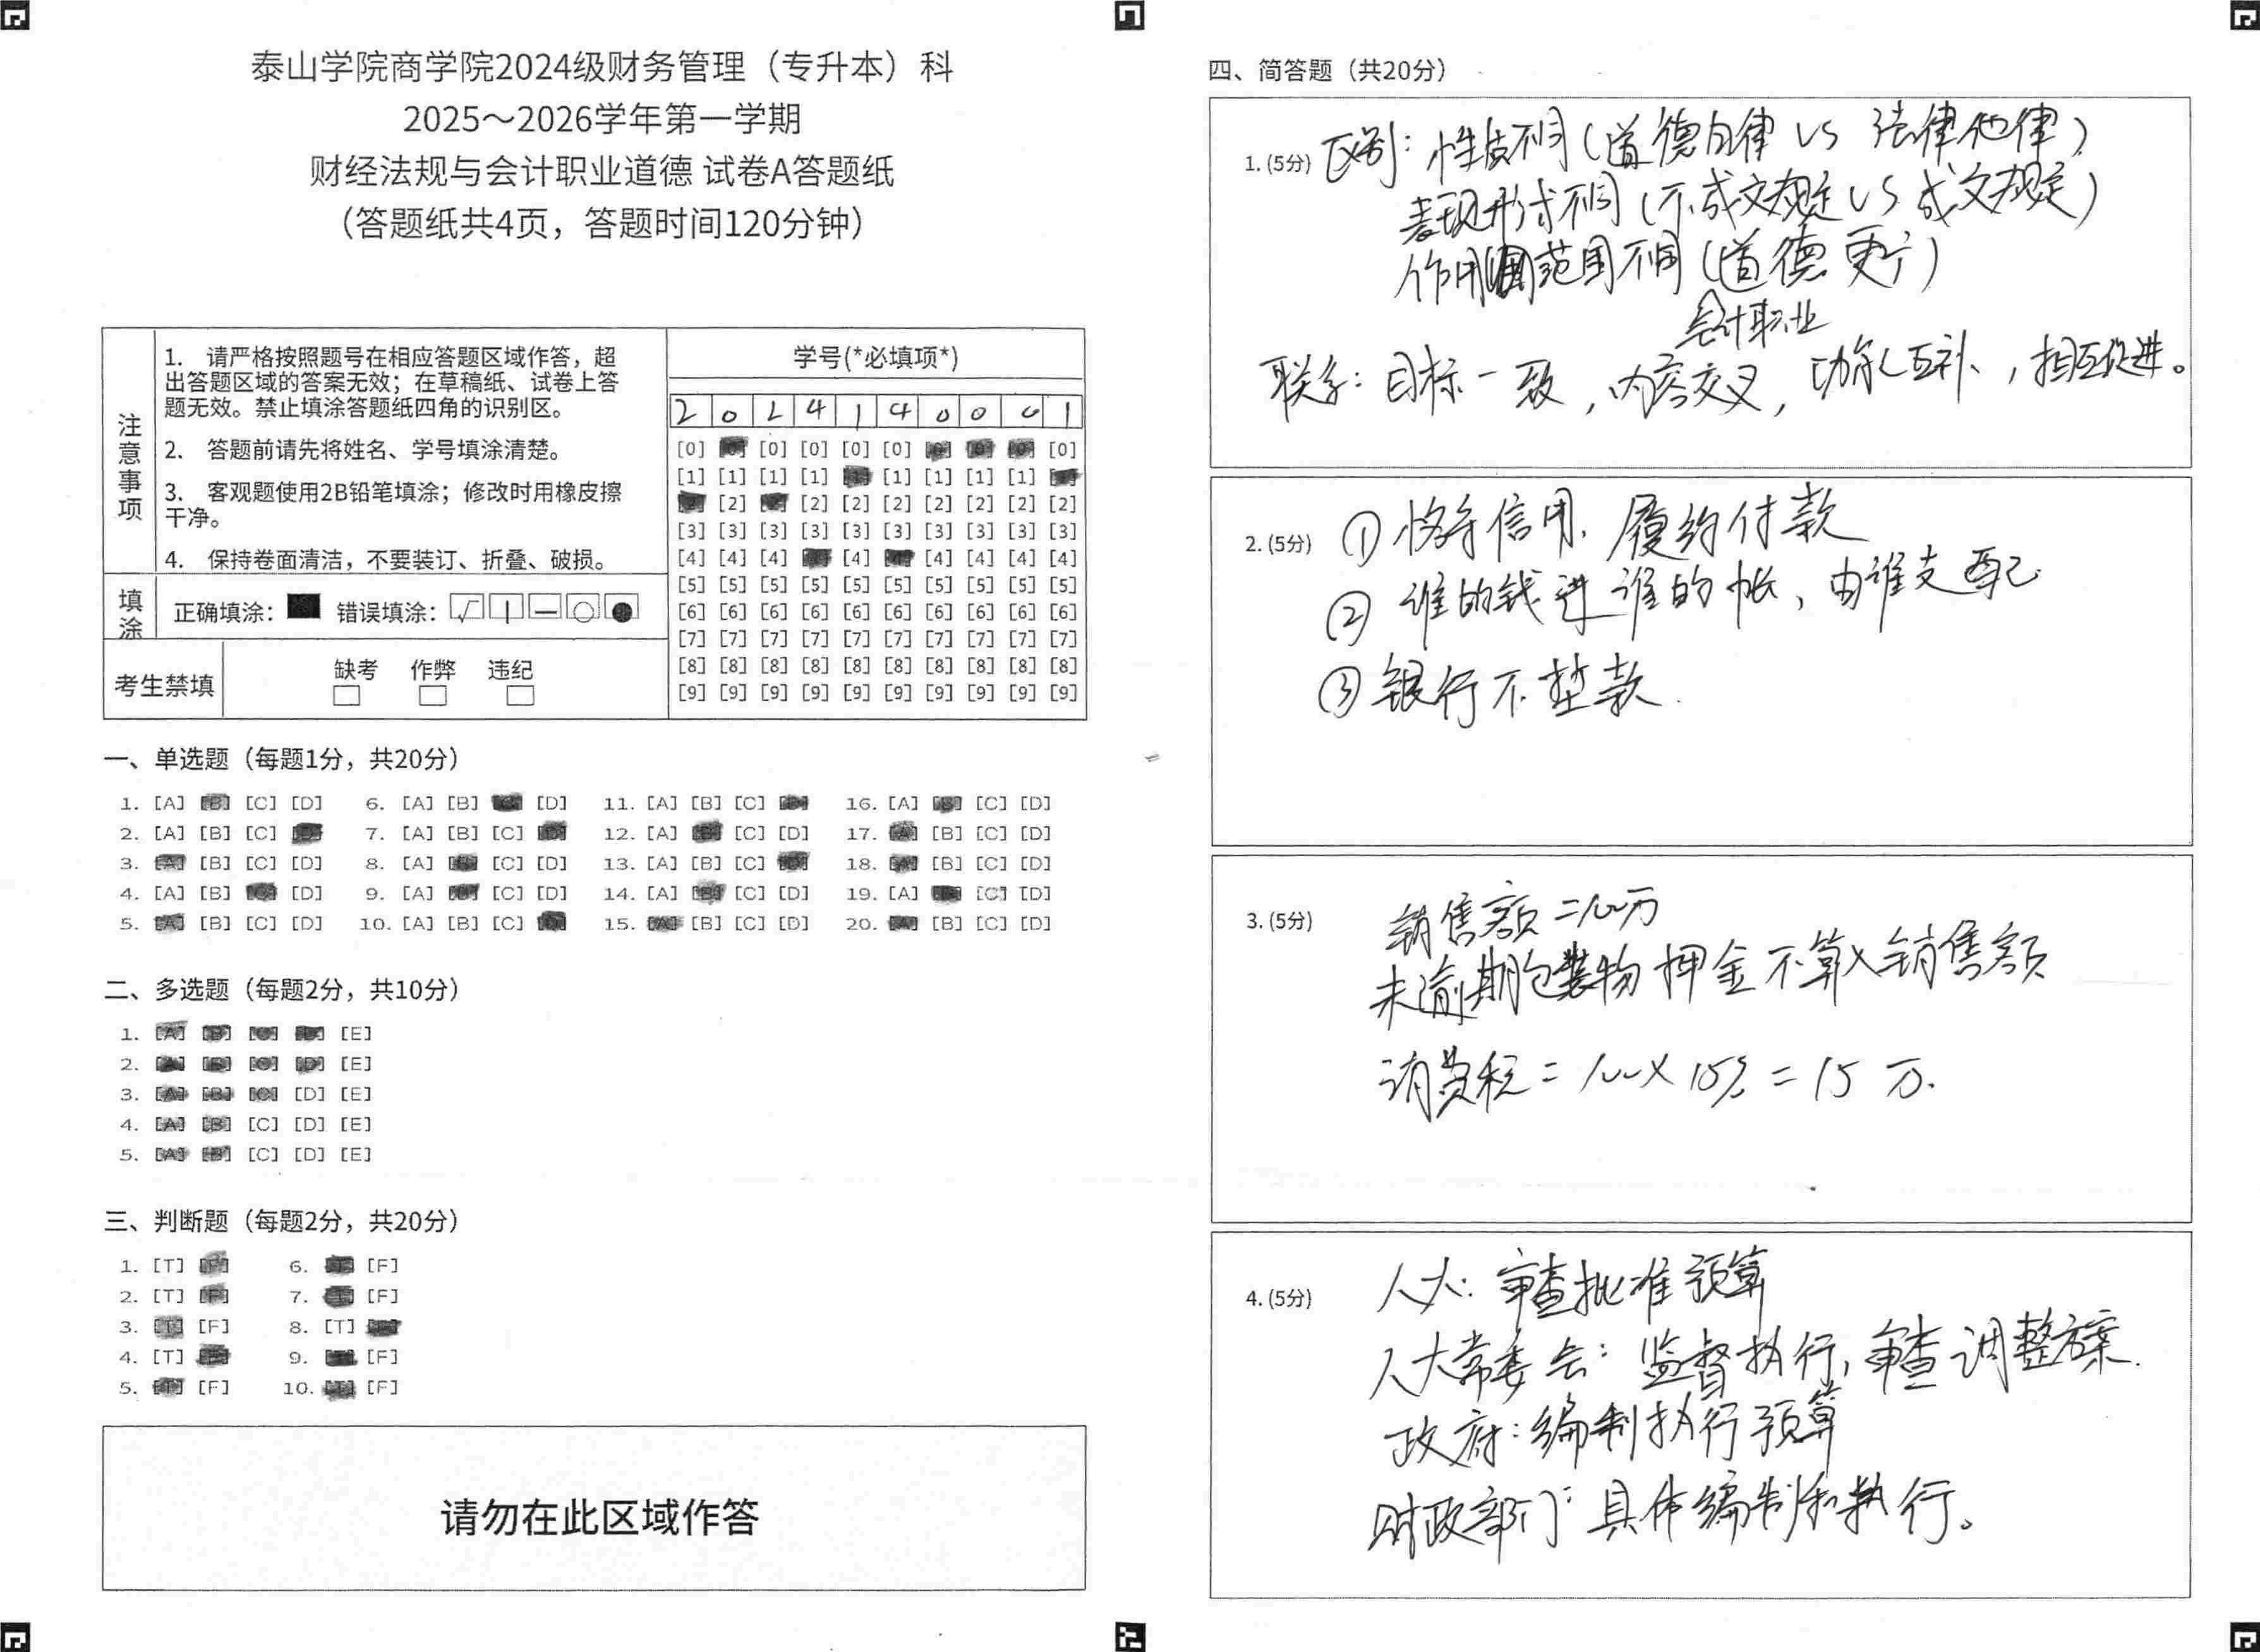 泰山学院商学院2024级财务管理（专升本）科
2025～2026学年第一学期
财经法规与会计职业道德 试卷A答题纸
（答题纸共4页，答题时间120分钟）
注意事项
1. 请严格按照题号在相应答题区域作答，超
出答题区域的答案无效；在草稿纸、试卷上答
题无效。禁止填涂答题纸四角的识别区。
2. 答题前请先将姓名、学号填涂清楚。
3. 客观题使用2B铅笔填涂；修改时用橡皮擦
干净。
4. 保持卷面清洁，不要装订、折叠、破损。
填涂
正确填涂： 错误填涂：
考生禁填
缺考 作弊 违纪
学号(*必填项*)
2 0 2 4 1 4 0 0 0 1
[0] [0] [0] [0] [0] [0] [0]
[1] [1] [1] [1] [1] [1] [1] [1]
[2] [2] [2] [2] [2] [2] [2] [2]
[3] [3] [3] [3] [3] [3] [3] [3] [3] [3]
[4] [4] [4] [4] [4] [4] [4] [4]
[5] [5] [5] [5] [5] [5] [5] [5] [5] [5]
[6] [6] [6] [6] [6] [6] [6] [6] [6] [6]
[7] [7] [7] [7] [7] [7] [7] [7] [7] [7]
[8] [8] [8] [8] [8] [8] [8] [8] [8] [8]
[9] [9] [9] [9] [9] [9] [9] [9] [9] [9]
一、单选题（每题1分，共20分）
1. [A] [B] [C] [D] 6. [A] [B] [D] 11. [A] [B] [C] 16. [A] [B] [C] [D]
2. [A] [B] [C] 7. [A] [B] [C] 12. [A] [C] [D] 17. [A] [B] [C] [D]
3. [A] [B] [C] [D] 8. [A] [C] [D] 13. [A] [B] [C] 18. [A] [B] [C] [D]
4. [A] [B] [D] 9. [A] [C] [D] 14. [A] [B] [C] [D] 19. [A] [C] [D]
5. [A] [B] [C] [D] 10. [A] [B] [C] 15. [A] [B] [C] [D] 20. [A] [B] [C] [D]
二、多选题（每题2分，共10分）
1. [A] [B] [C] [D] [E]
2. [A] [B] [C] [D] [E]
3. [A] [B] [C] [D] [E]
4. [A] [B] [C] [D] [E]
5. [A] [B] [C] [D] [E]
三、判断题（每题2分，共20分）
1. [T] [F] 6. [F]
2. [T] [F] 7. [F]
3. [T] [F] 8. [T]
4. [T] 9. [F]
5. [T] [F] 10. [T] [F]
请勿在此区域作答
四、简答题（共20分）
1. (5分) 区别：性质不同（道德自律 VS 法律他律）
表现形式不同（不成文规定 VS 成文规定）
作用范围不同（道德更广）
会计职业
联系：目标一致，内容交叉，功能互补，相互促进。
2. (5分) ① 恪守信用，履约付款
② 谁的钱进谁的帐，由谁支配
③ 银行不垫款.
3. (5分) 销售额=100万
未逾期包装物押金不算入销售额
消费税=100×15%=15万.
4. (5分) 人大：审查批准预算
人大常委会：监督执行，审查调整方案.
政府：编制执行预算
财政部门：具体编制和执行。